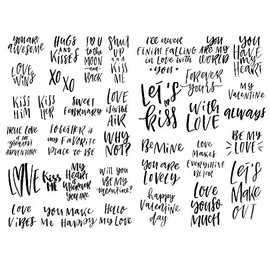 you are
awesome
HUGS
and
KISSES
TO
the
MOON
and
BACK
Shut
up
and
kiss
me
LOVE
WINS
XO
XO
KISS
HIM
KISS
HER
SWEET
FEBRUARY
LOVE
is in the
AIR
TRUE LOVE
is the
GREATEST
ADVENTURE
TOGETHER is
my FAVORITE
PLACE TO BE
WHY
NOT?
LOVE
KISS
ME
MY
HEART
is
WHEREVER
YOU ARE
will you
BE MY
VALENTINE?
LOVE
VIBES
YOU MAKE
ME HAPPY
HELLO
MY LOVE
I'LL never
FINISH FALLING
in LOVE with
YOU
YOU
ARE MY
WORLD
YOU
HAVE my
HEART
Forever
yours
MY
VALENTINE
Let's
kiss
WITH
LOVE
always
BE MY
LOVE
BE MINE
LOVE
MAKES
EVERYTHING
BETTER
YOU ARE
LOVELY
happy
VALENTINE
day
LOVE
YOU SO
MUCH
LET'S
MAKE
OUT